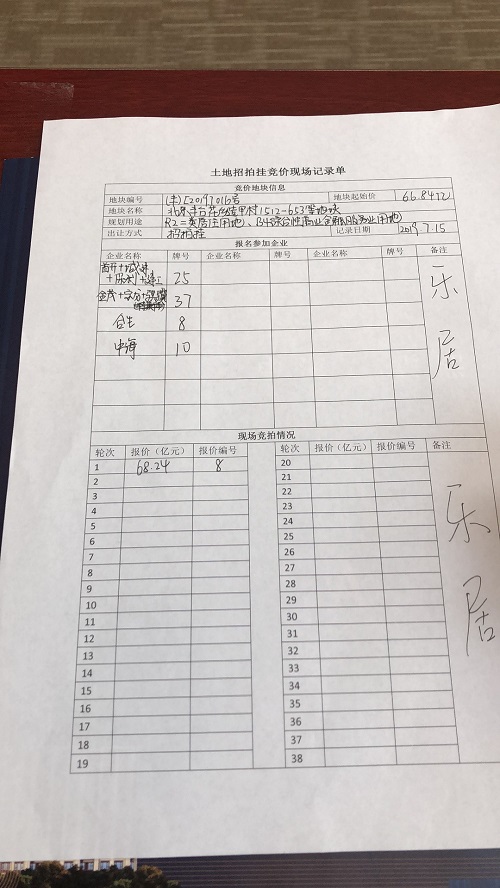 土地招拍挂竞价现场记录单
竞价地块信息
地块编号 (丰)[2019]016号 地块起始价 66.84亿
地块名称 北京丰台花乡
规划用途 R2二类居住用地、B4综合性商业金融服务业用地
出让方式 招拍挂 记录日期 2019.7.15
报名参加企业
企业名称 牌号 企业名称 牌号 企业名称 牌号 备注
25
37
合生 8
中海 10
乐居
现场竞拍情况
轮次 报价（亿元） 报价编号 轮次 报价（亿元） 报价编号 备注
1 68.24 8 20
2 21
3 22
4 23
5 24
6 25
7 26
8 27
9 28
10 29
11 30
12 31
13 32
14 33
15 34
16 35
17 36
18 37
19 38
乐居